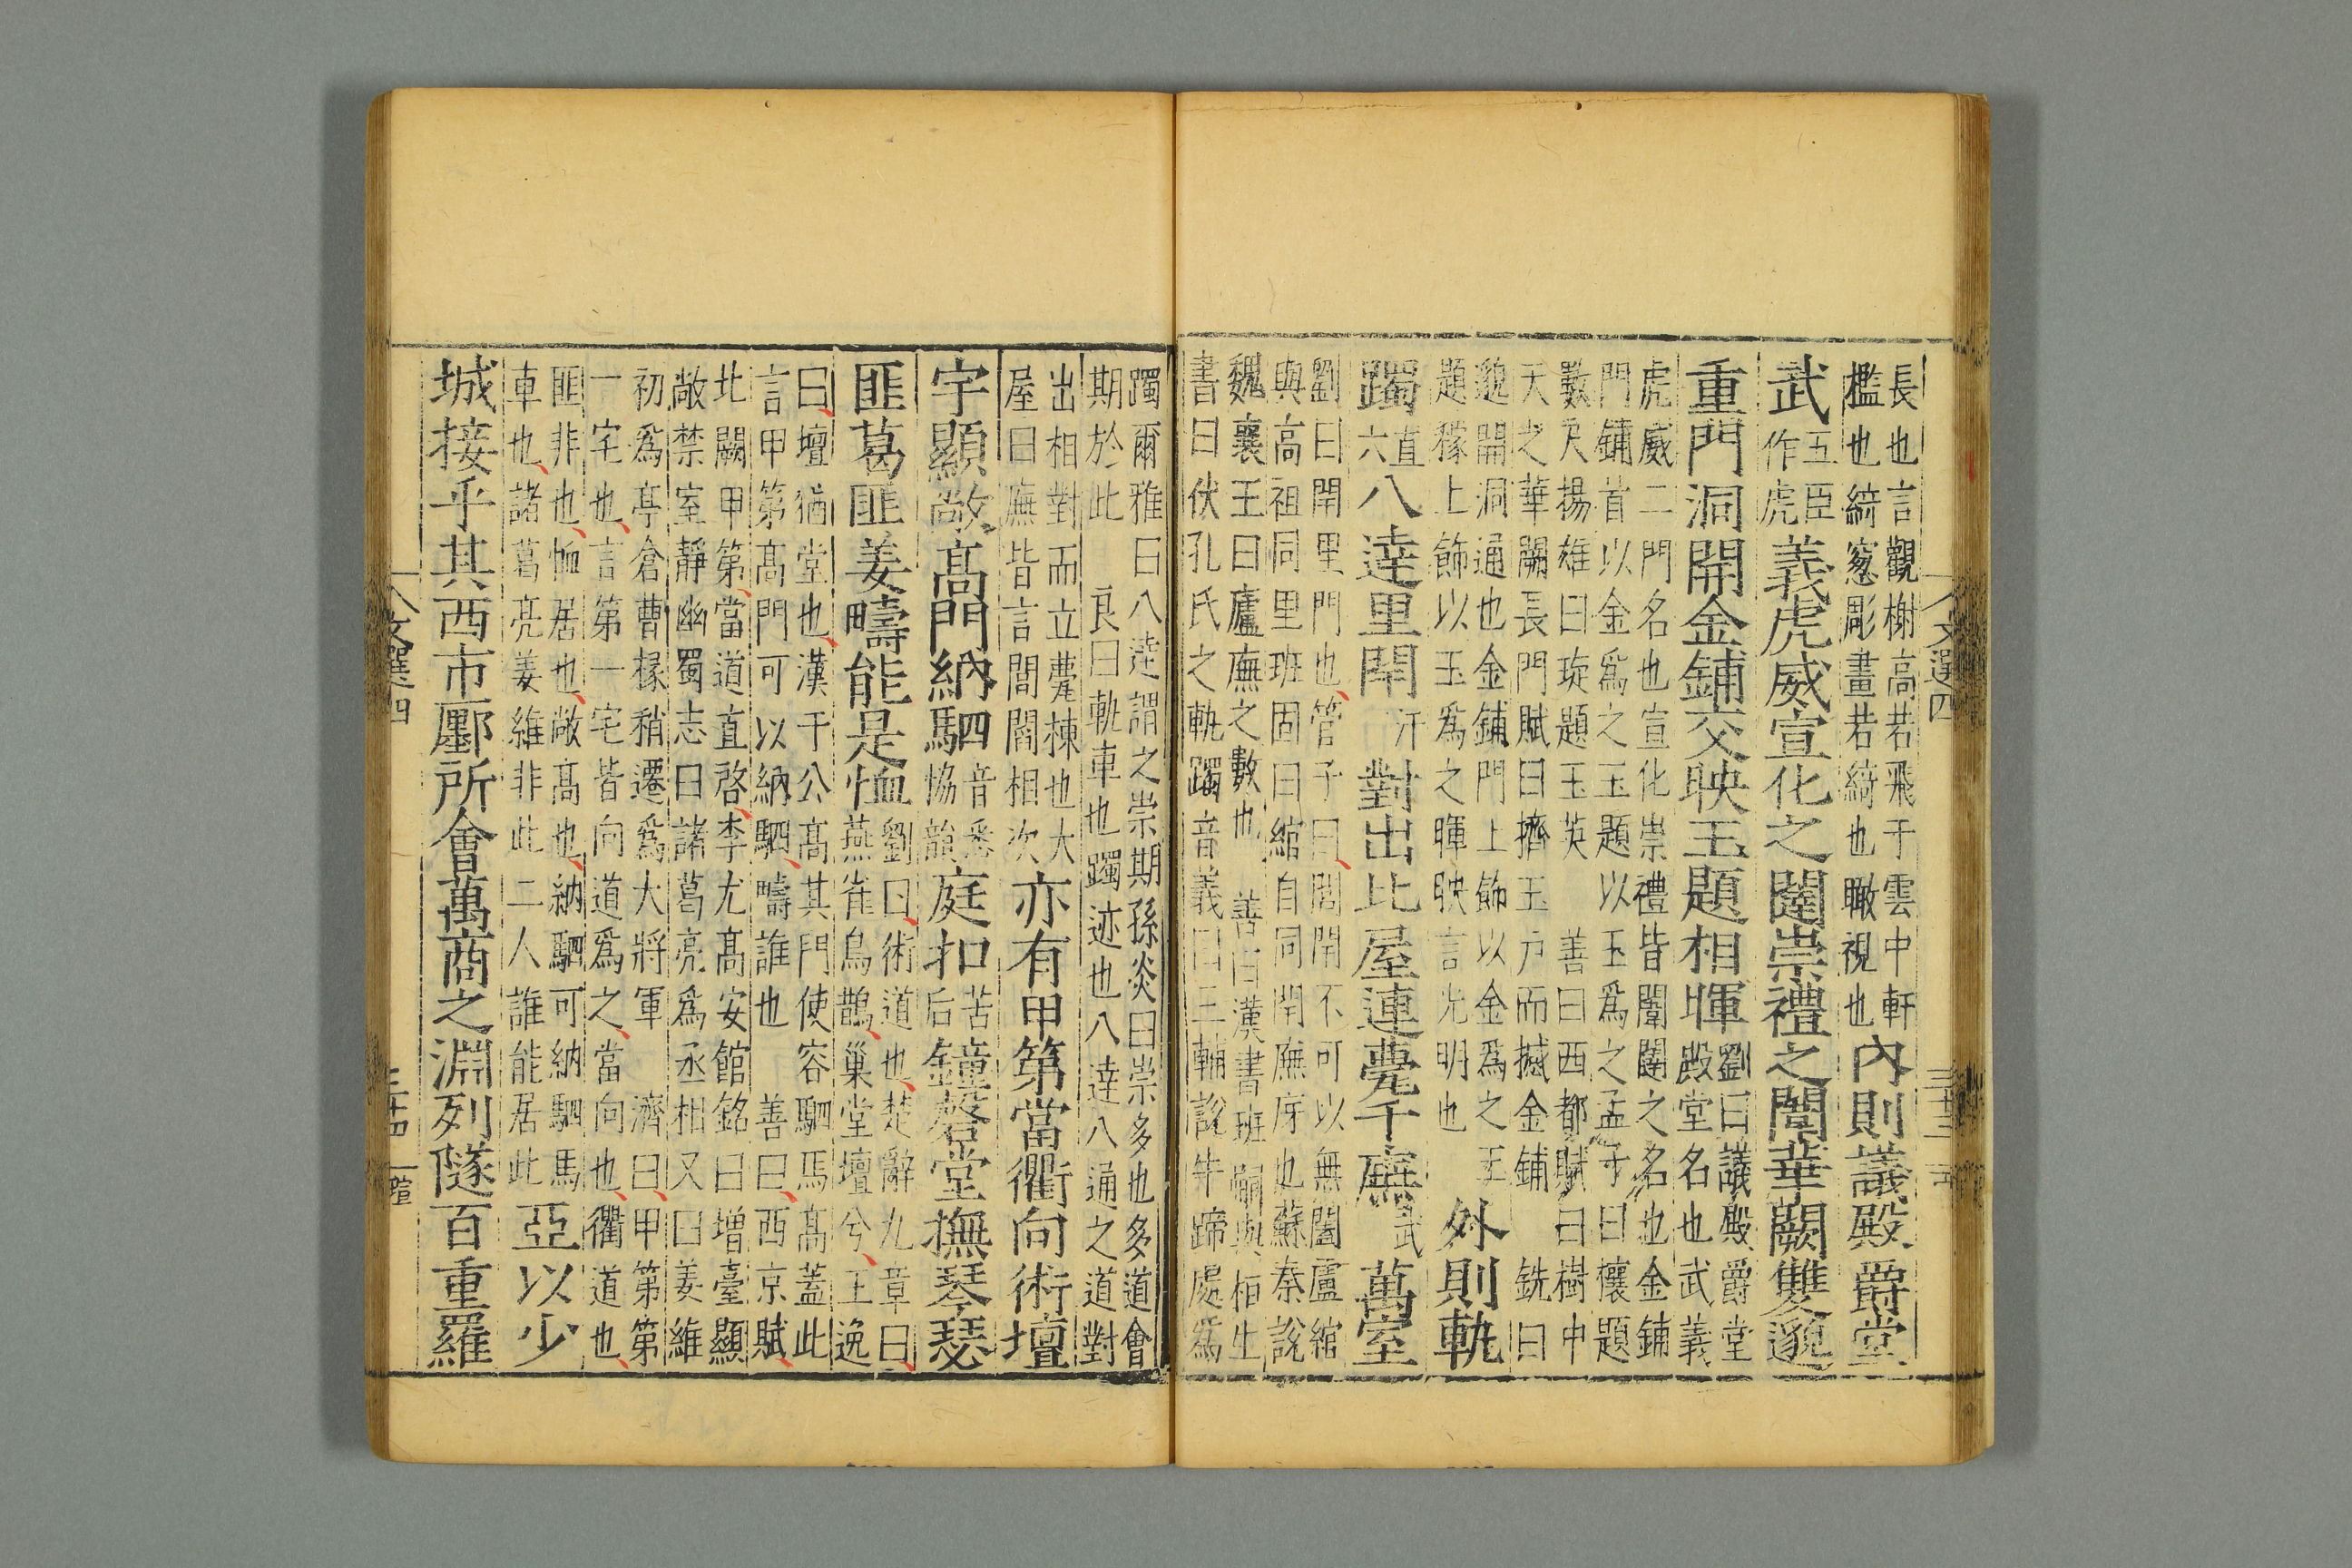 長也言觀榭高若飛于雲中軒
檻也綺窓彫畫若綺也瞰視也
內則議殿爵堂
武五臣作虎義虎威宣化之闥崇禮之闈華闕雙邈
重門洞開金鋪交映玉題相暉
劉曰議殿爵堂
殿堂名也武義
虎威二門名也宣化崇禮皆闈闥之名也金鋪
門鋪首以金爲之玉題以玉爲之孟子曰榱題
數尺揚雄曰琁題玉英 善曰西都賦曰樹中
天之華闕長門賦曰擠玉戶而撼金鋪 銑曰
邈開洞通也金鋪門上飾以金爲之玉
題椽上飾以玉爲之暉映言光明也
外則軌
躅直六八逵里閈汗對出比屋連甍千廡武萬室
劉曰閈里門也管子曰閭閈不可以無闔盧綰
與高祖同里班固曰綰自同閈廡序也蘇秦說
魏襄王曰廬廡之數也 善曰漢書班嗣與桓生
書曰伏孔氏之軌躅音義曰三輔說牛蹄處爲
文選四
躅爾雅曰八逵謂之崇期孫炎曰崇多也多道會
期於此 良曰軌車也躅迹也八逵八通之道對
出相對而立甍棟也大
屋曰廡皆言閭閻相次
亦有甲第當衢向術壇
宇顯敞高門納駟音悉協韻庭扣苦后鐘磬堂撫琴瑟
匪葛匪姜疇能是恤
劉曰術道也楚辭九章曰
燕雀烏鵲巢堂壇兮王逸
曰壇猶堂也漢于公高其門使容駟馬高蓋此
言甲第高門可以納駟疇誰也 善曰西京賦
北闕甲第當道直啓李尤高安館銘曰增臺顯
敞禁室靜幽蜀志曰諸葛亮爲丞相又曰姜維
初爲亭倉曹掾稍遷爲大將軍 濟曰甲第第
一宅也言第一宅皆向道爲之當向也衢道也
匪非也恤居也敞高也納駟可納駟馬
車也諸葛亮姜維非此二人誰能居此
亞以少
城接乎其西市廛所會萬商之淵列隧百重羅
文選四